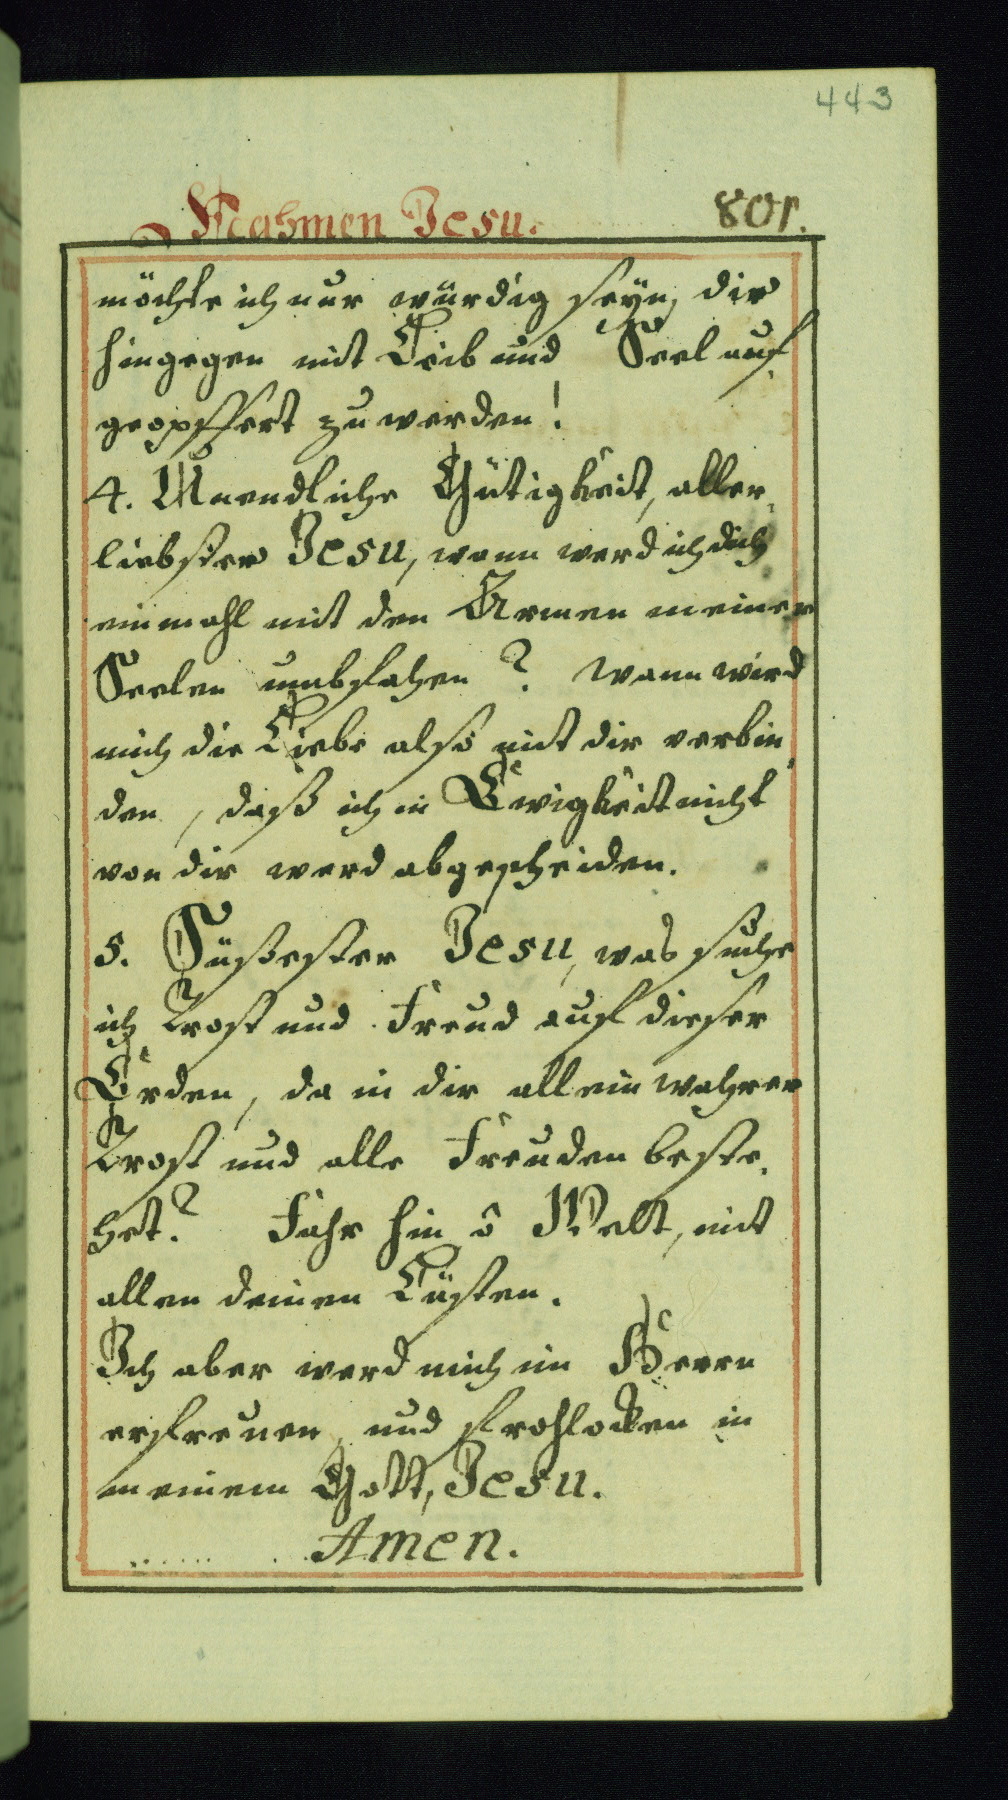 443
Nahmen Jesu. 801.
möchte ich nur würdig seyn, dir
hingegen mit Leib und Seel auf
geopffert zu werden!
4. Unendliche Gütigkeit, aller-
liebster Jesu, wann werd ich dich
einmahl mit den Armen meiner
Seelen umbfahen? Wann wird
mich die Liebe also mit dir verbin-
den, daß ich in Ewigkeit nicht
von dir werd abgescheiden.
5. Süßester Jesu, was suche
ich Trost und Freud auf dieser
Erden, da in dir allein wahrer
Trost und alle Freuden beste-
het? Fahr hin ô Welt, mit
allen deinen Lüsten.
Ich aber werd mich im Herrn
erfreuen, und frohlocken in
meinem Gott, Jesu.
Amen.